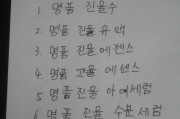 1 명품 진율수
2 명품 진율 유액
3 명품 진율 에센스
4 명품 고율 에센스
5 명품 진율 아이세럼
6 명품 진율 수분세럼